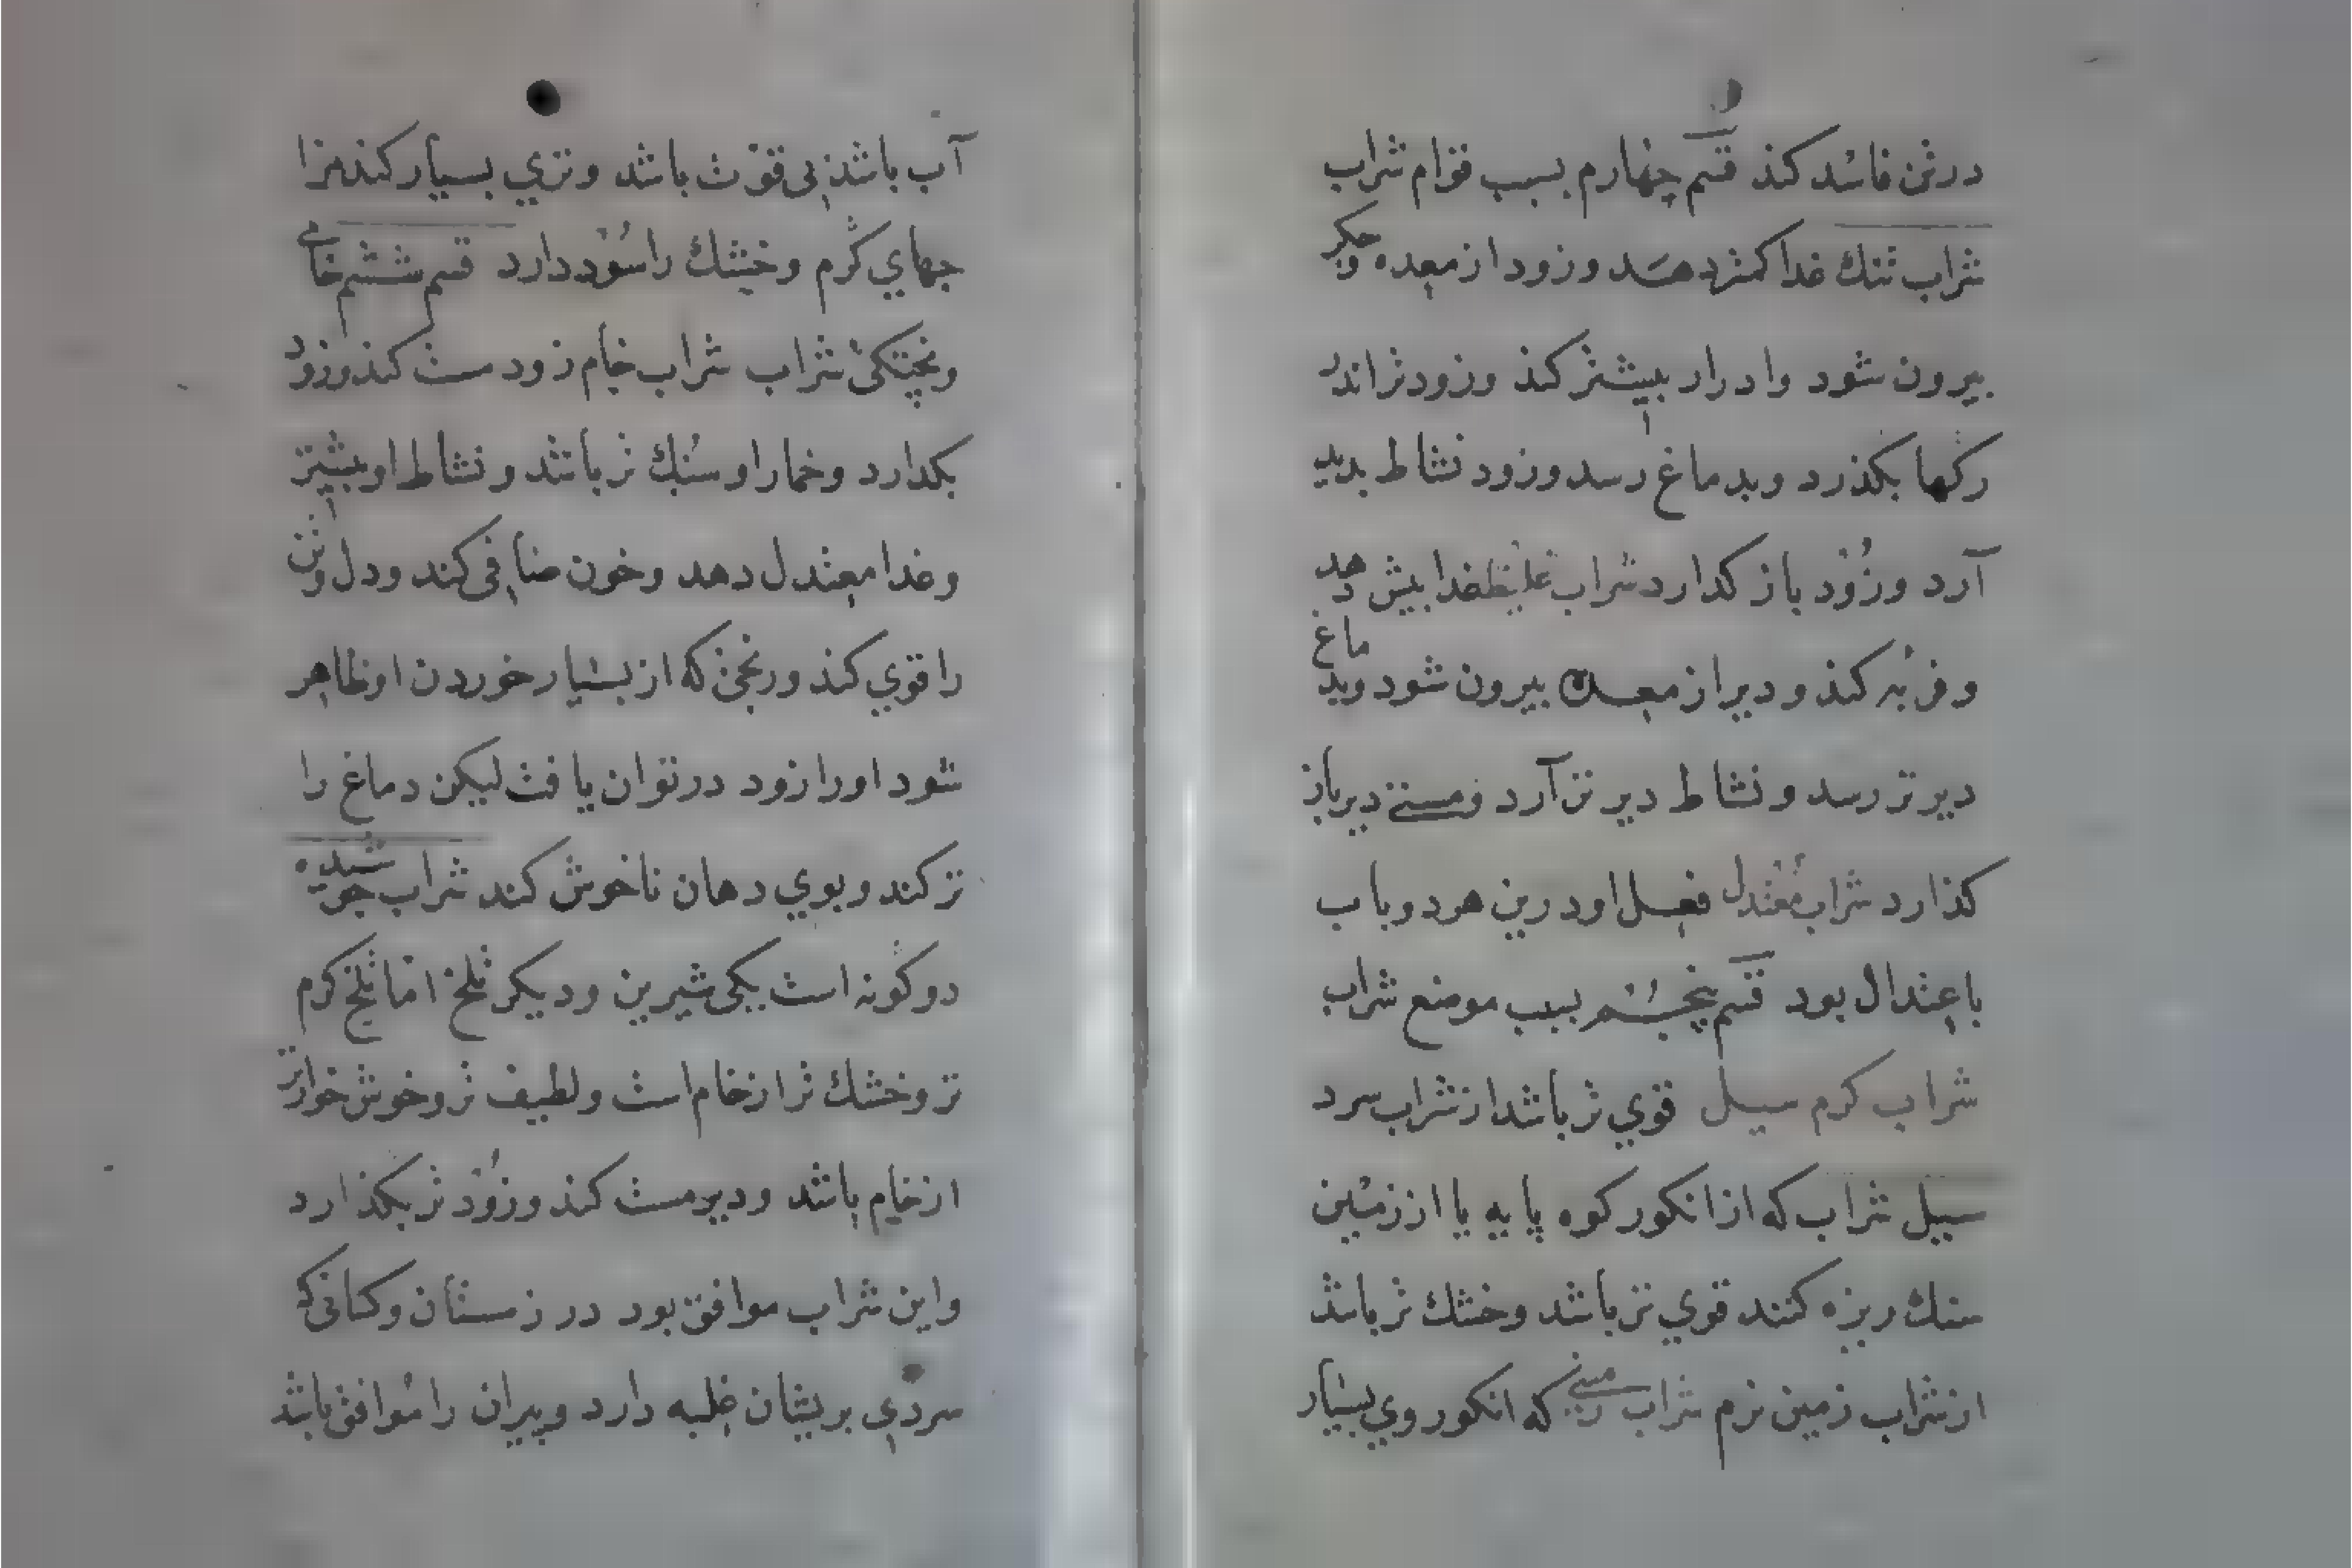 در تن فاسد کند قسم چهارم بسبب قوام شراب
شراب تنک غذا کمتر دهد و زود از معده و جکر
بیرون شود و ادرار بیشتر کند و زودتر اندر
رکها بکذرد و بدماغ رسد و زود نشاط بدید
آرد و زود باز کدارد شراب غلیظ غدا بیش دهد
و فربه کند و دیر از معده بیرون شود و بدماغ
دیرتر رسد و نشاط دیرتر آرد و مستی دیر باز
کذارد شراب معتدل فعل او درین هر دو باب
باعتدال بود قسم پنجم بسبب موضع شراب
شراب کرم سیل قوی تر باشد از شراب سرد
سیل شراب که از انکور کوه پایه یا از زمین
سنک ریزه کنند قوی تر باشد و خشک تر باشد
از شراب زمین نرم شراب زمینی که انکور وی بسیار
آب باشد بی قوت باشد و تری بسیار کند مزا
جهای کرم و خشک را سود دارد قسم ششم خامی
و پختکی شراب شراب خام زود مست کند و زود
بکدارد و خمار او سبک تر باشد و نشاط او بیشتر
و غدا معتدل دهد و خون صافی کند و دل و تن
را قوی کند و رنجی که از بسیار خوردن او ظاهر
شود او را زود در توان یافت لیکن دماغ را
تر کند و بوی دهان ناخوش کند شراب جوشیده
دو کونه است یکی شیرین و دیکر تلخ اما تلخ کرم
تر و خشک تر از خام است و لطیف تر و خوش خوارتر
از خام باشد و دیر مست کند و زود تر بکذارد
و این شراب موافق بود در زمستان و کسانی که
سردی بریشان غلبه دارد و پیران را موافق باشد